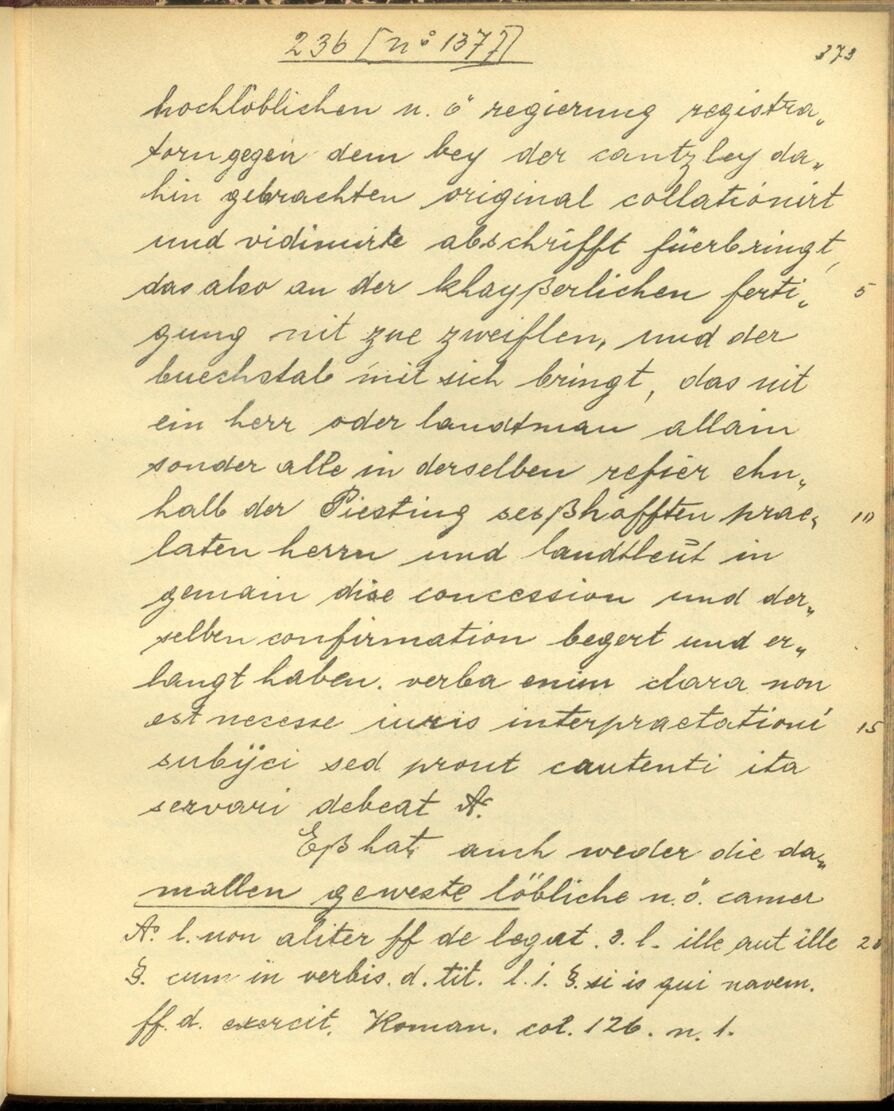 236 [nº 1377] 373
hochlöblichen n. ö regierung registra„
torn gegen dem bey der cantzley da„
hin gebrachten original collationirt
und vidimirte abschrifft füerbringt,
das also an der khayßerlichen ferti„ 5
gung nit zue zweiflen, und der
buechstab mit sich bringt, das nit
ein herr oder landtman allain
sonder alle in derselben refier ehn„
halb der Piesting sesßhafften prae„ 10
laten herrn und landtleüt in
gemain dise concession und der„
selben confirmation begert und er„
langt haben. verba enim clara non
est necesse iuris interpraetationi 15
subÿci sed prout cautenti ita
servari debeat A.
Eß hat auch weder die da„
mallen geweste löbliche n. ö. camer
A. l. non aliter ff de legat. 3. l. ille aut ille 20
§. cum in verbis. d. tit. l. i. §. si is qui navem.
ff. d. exercit. Roman. col. 126. n. 1.